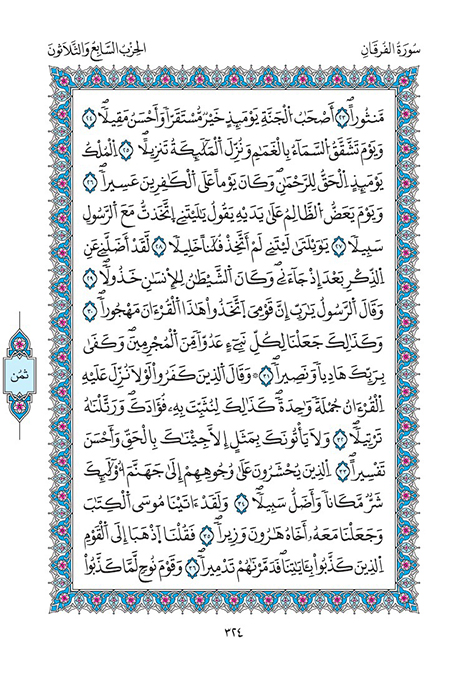 سُورَةُ الفُرْقَانِ
الحِزْبُ السَّابِعُ وَالثَّلَاثُونَ
مَّنثُوراًۖ ٢٣ أَصْحَٰبُ الْجَنَّةِ يَوْمَئِذٍ خَيْرٌ مُّسْتَقَرّاً وَأَحْسَنُ مَقِيلاًۖ ٢٤
وَيَوْمَ تَشَّقَّقُ السَّمَآءُ بِالْغَمَٰمِ وَنُزِّلَ الْمَلَٰٓئِكَةُ تَنزِيلاًۖ ٢٥ اِلْمُلْكُ
يَوْمَئِذٍ اِلْحَقُّ لِلرَّحْمَٰنِۖ وَكَانَ يَوْماً عَلَى الْكَٰفِرِينَ عَسِيراًۖ ٢٦
وَيَوْمَ يَعَضُّ الظَّالِمُ عَلَىٰ يَدَيْهِ يَقُولُ يَٰلَيْتَنِے اِتَّخَذتُّ مَعَ الرَّسُولِ
سَبِيلاًۖ ٢٧ يَٰوَيْلَتَىٰ لَيْتَنِے لَمْ أَتَّخِذْ فُلَاناً خَلِيلاًۖ ٢٨ لَّقَدْ أَضَلَّنِے عَنِ
اِلذِّكْرِ بَعْدَ إِذْ جَآءَنِےۖ وَكَانَ الشَّيْطَٰنُ لِلْإِنسَٰنِ خَذُولاًۖ ٢٩
وَقَالَ الرَّسُولُ يَٰرَبِّ إِنَّ قَوْمِيَ اَتَّخَذُواْ هَٰذَا الْقُرْءَانَ مَهْجُوراًۖ ٣٠
وَكَذَٰلِكَ جَعَلْنَا لِكُلِّ نَبِےٓءٍ عَدُوّاً مِّنَ الْمُجْرِمِينَۖ وَكَفَىٰ
بِرَبِّكَ هَادِياً وَنَصِيراًۖ ٣١ وَقَالَ الذِينَ كَفَرُواْ لَوْلَا نُزِّلَ عَلَيْهِ
اِلْقُرْءَانُ جُمْلَةً وَٰحِدَةًۖ كَذَٰلِكَ لِنُثَبِّتَ بِهِۦ فُؤَادَكَۖ وَرَتَّلْنَٰهُ
تَرْتِيلاًۖ ٣٢ وَلَا يَأْتُونَكَ بِمَثَلٍ اِلَّا جِئْنَٰكَ بِالْحَقِّ وَأَحْسَنَ
تَفْسِيراًۖ ٣٣ اِلذِينَ يُحْشَرُونَ عَلَىٰ وُجُوهِهِمُۥٓ إِلَىٰ جَهَنَّمَ أُوْلَٰٓئِكَ
شَرٌّ مَّكَاناً وَأَضَلُّ سَبِيلاًۖ ٣٤ وَلَقَدَ اٰتَيْنَا مُوسَى الْكِتَٰبَ
وَجَعَلْنَا مَعَهُۥٓ أَخَاهُ هَٰرُونَ وَزِيراًۖ ٣٥ فَقُلْنَا اَذْهَبَآ إِلَى الْقَوْمِ
اِلذِينَ كَذَّبُواْ بِـَٔايَٰتِنَا فَدَمَّرْنَٰهُمْ تَدْمِيراًۖ ٣٦ وَقَوْمَ نُوحٍ لَّمَّا كَذَّبُواْ
ثُمُن
٣٢٤